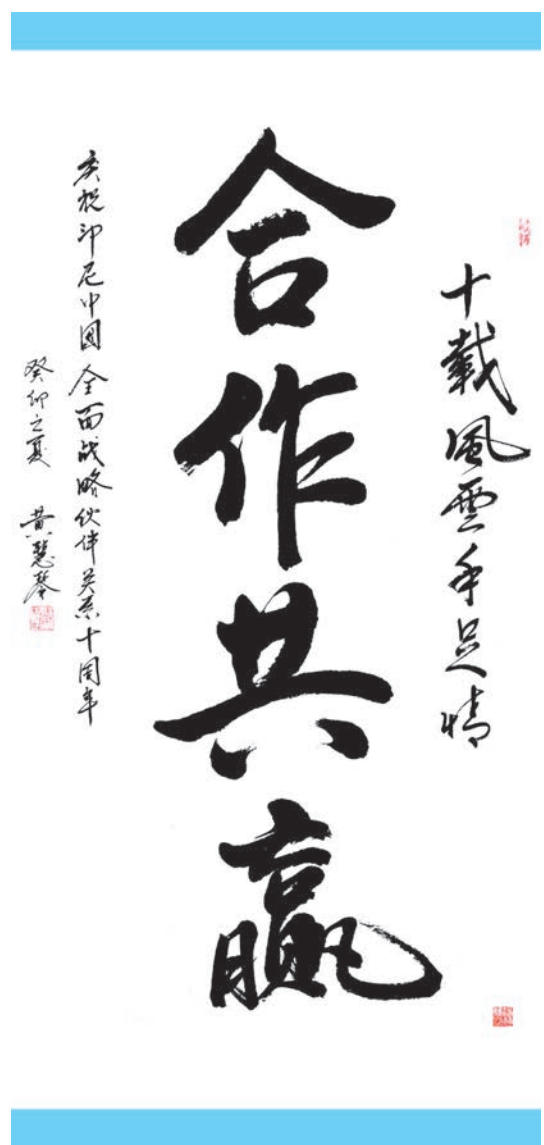 十載風雲手足情
合作共贏
庆祝印尼中国全面战略伙伴关系十周年
癸卯之夏 黄慧琴